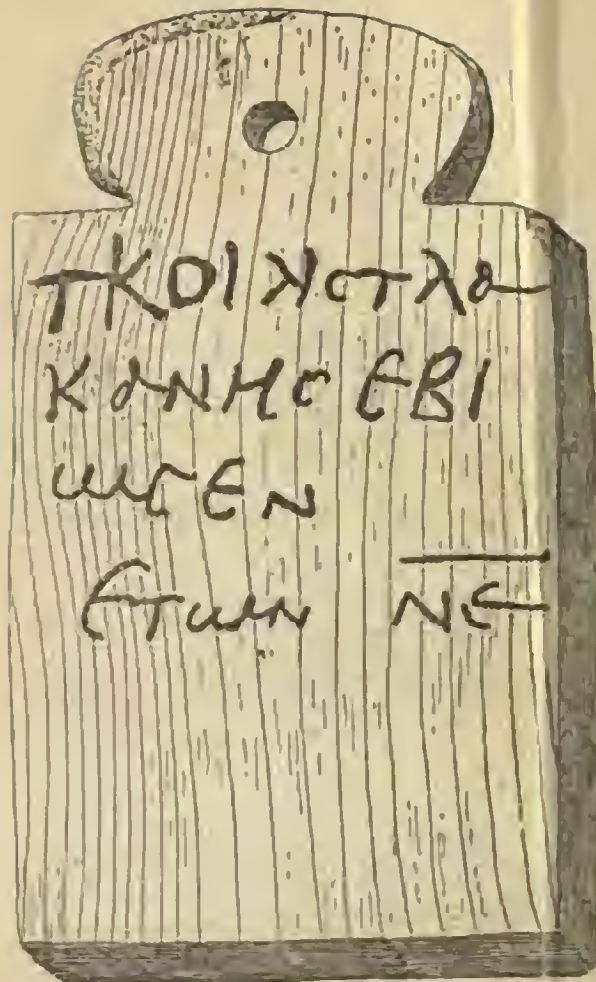 ΤΚΟΙΛΙϹΤΛΑ
ΚΑΝΗϹ ΕΒΙ
ΩϹΕΝ
ΕΤΩΝ Ν̅Ε̅